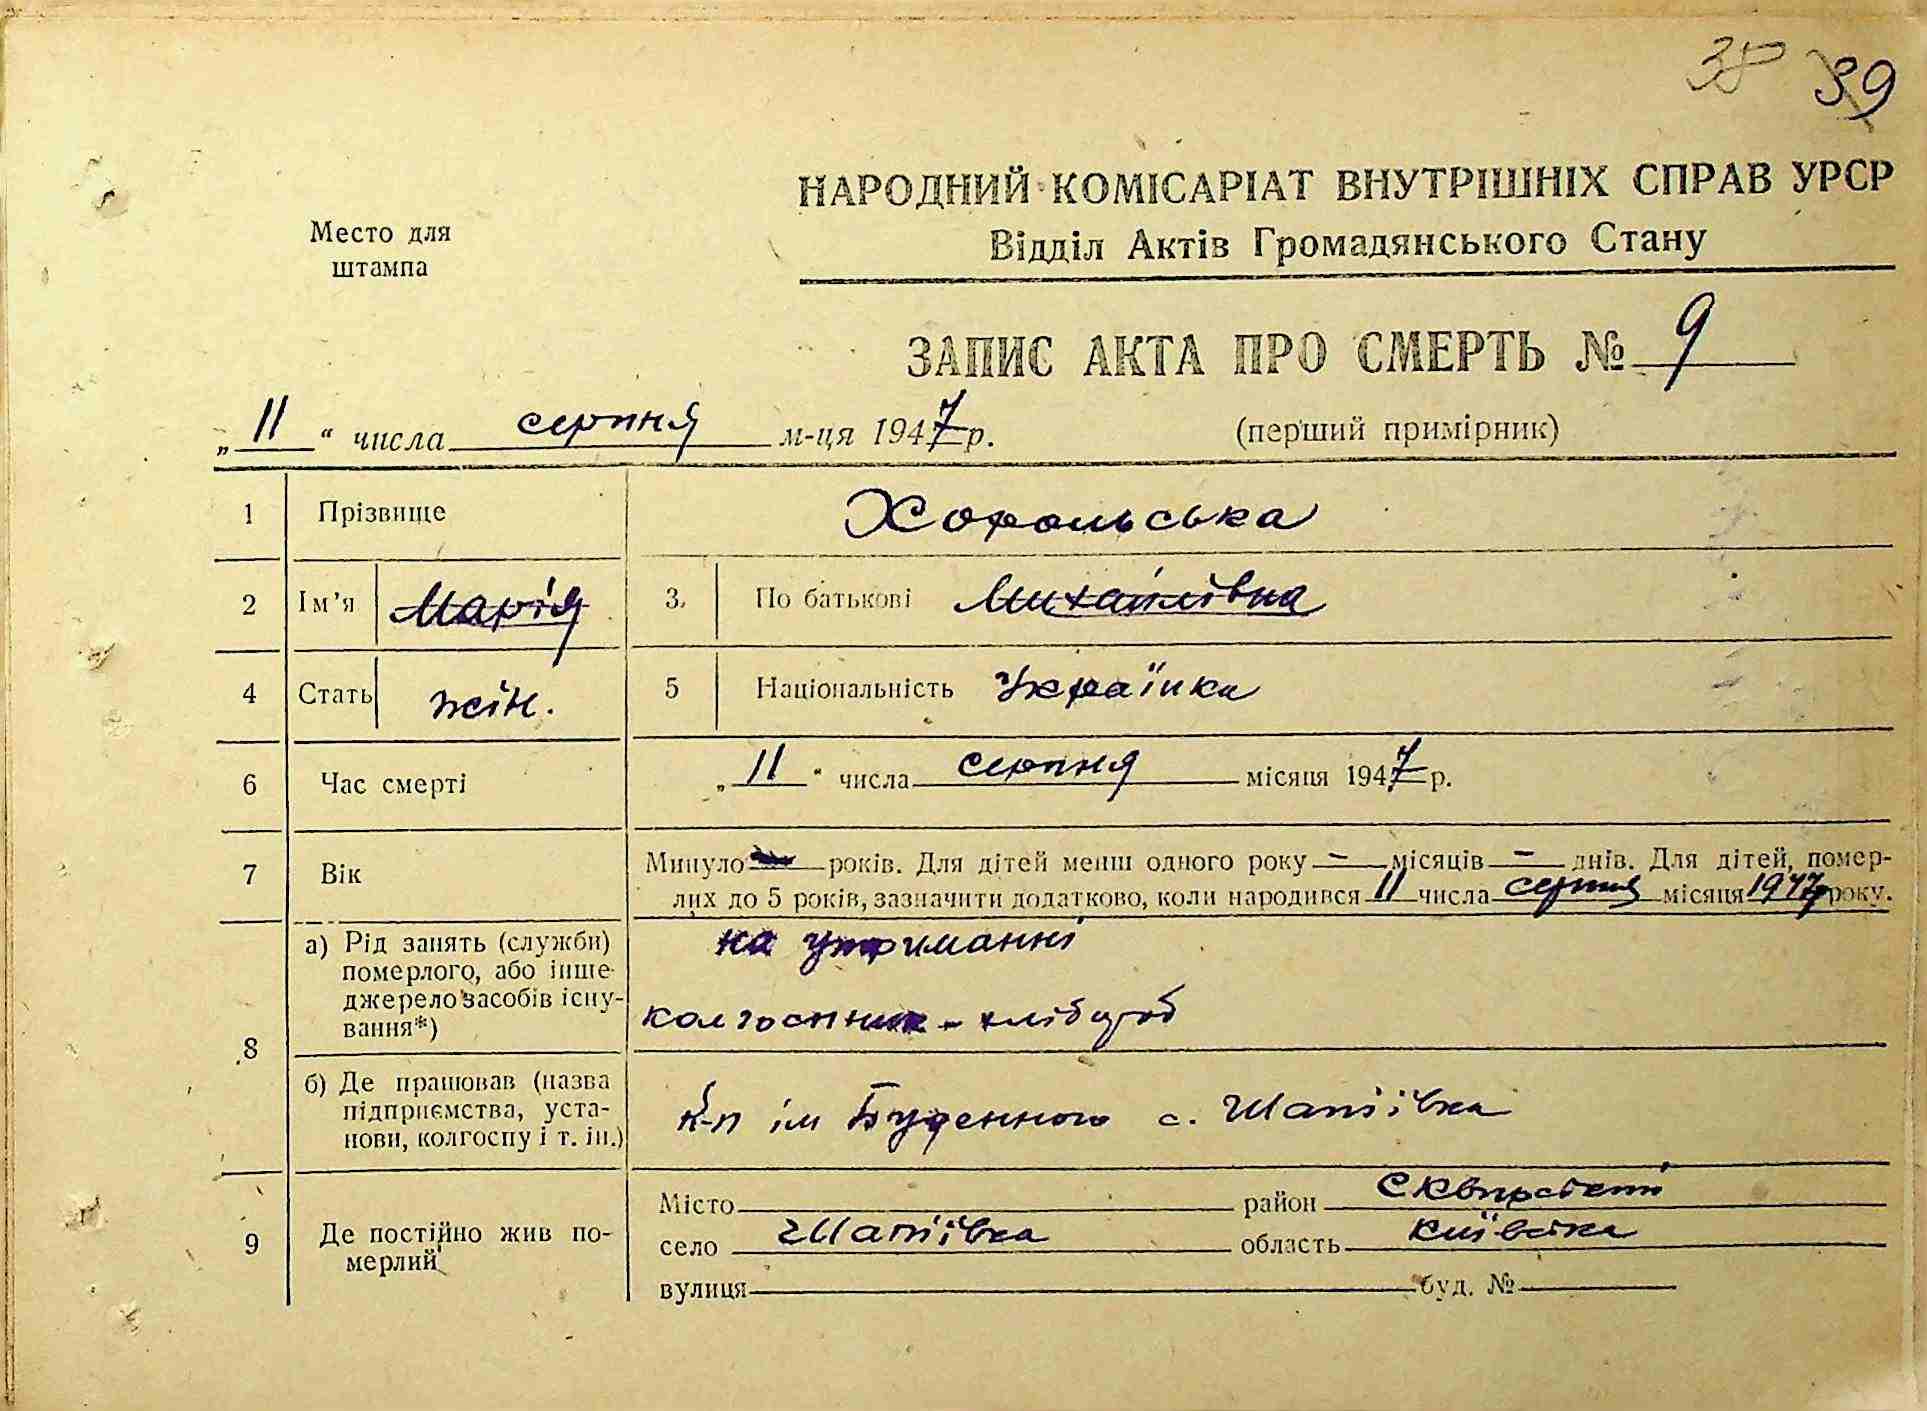 38 39
НАРОДНИЙ КОМІСАРІАТ ВНУТРІШНІХ СПРАВ УРСР
Место для штампа
Відділ Актів Громадянського Стану
ЗАПИС АКТА ПРО СМЕРТЬ № 9
„11“ числа серпня м-ця 1947 р. (перший примірник)
1 Прізвище Хорольська
2 Ім'я Марія 3. По батькові Михайлівна
4 Стать жін. 5 Національність Українка
6 Час смерті „11“ числа серпня місяця 1947 р.
7 Вік Минуло років. Для дітей менш одного року – місяців – днів. Для дітей, помер-
лих до 5 років, зазначити додатково, коли народився 11 числа серпня місяця 1947 року.
8 а) Рід занять (служби) померлого, або інше джерело засобів існу-
вання*) на утриманні
колгоспник - хлібороб
б) Де працював (назва підприємства, уста-
нови, колгоспу і т. ін.) к-п ім Буденного с. Шапіївка
9 Де постійно жив по-
мерлий Місто район Сквирський
село Шапіївка область Київська
вулиця буд. №